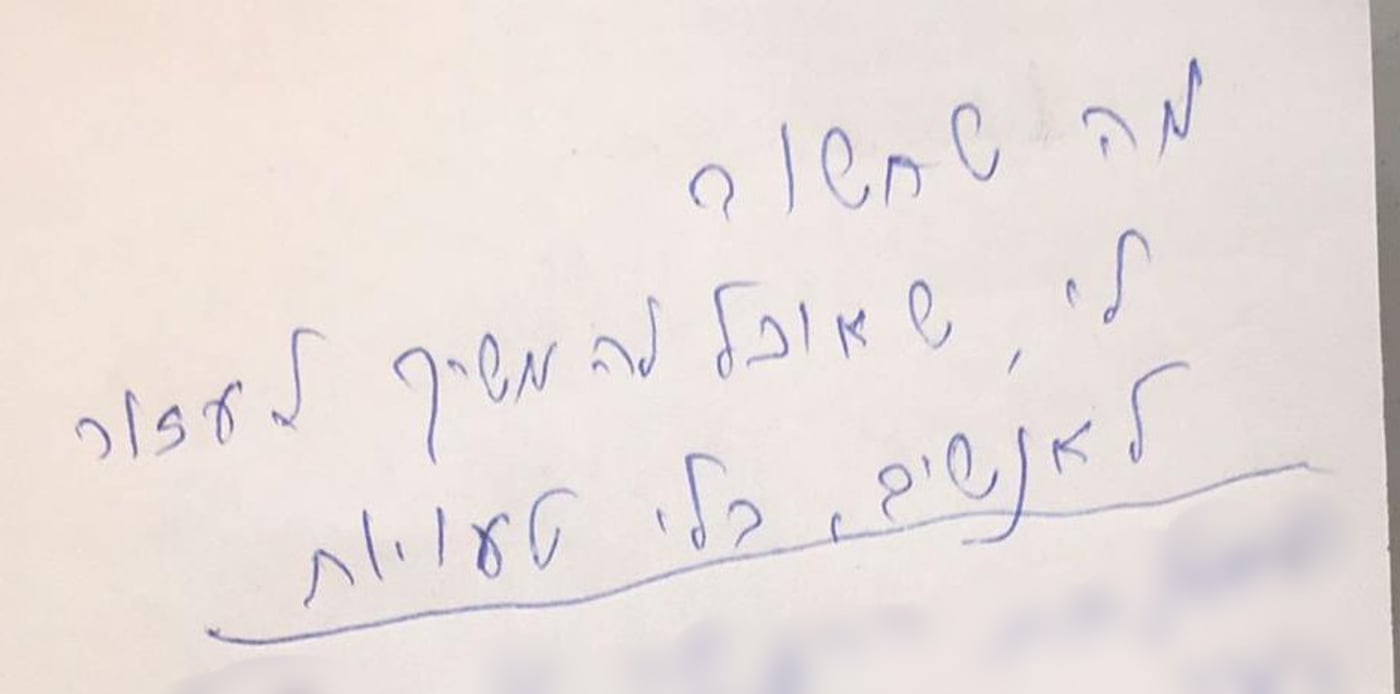 מה שחשוב
לי, שאוכל להמשיך לעזור
לאנשים, בלי טעויות